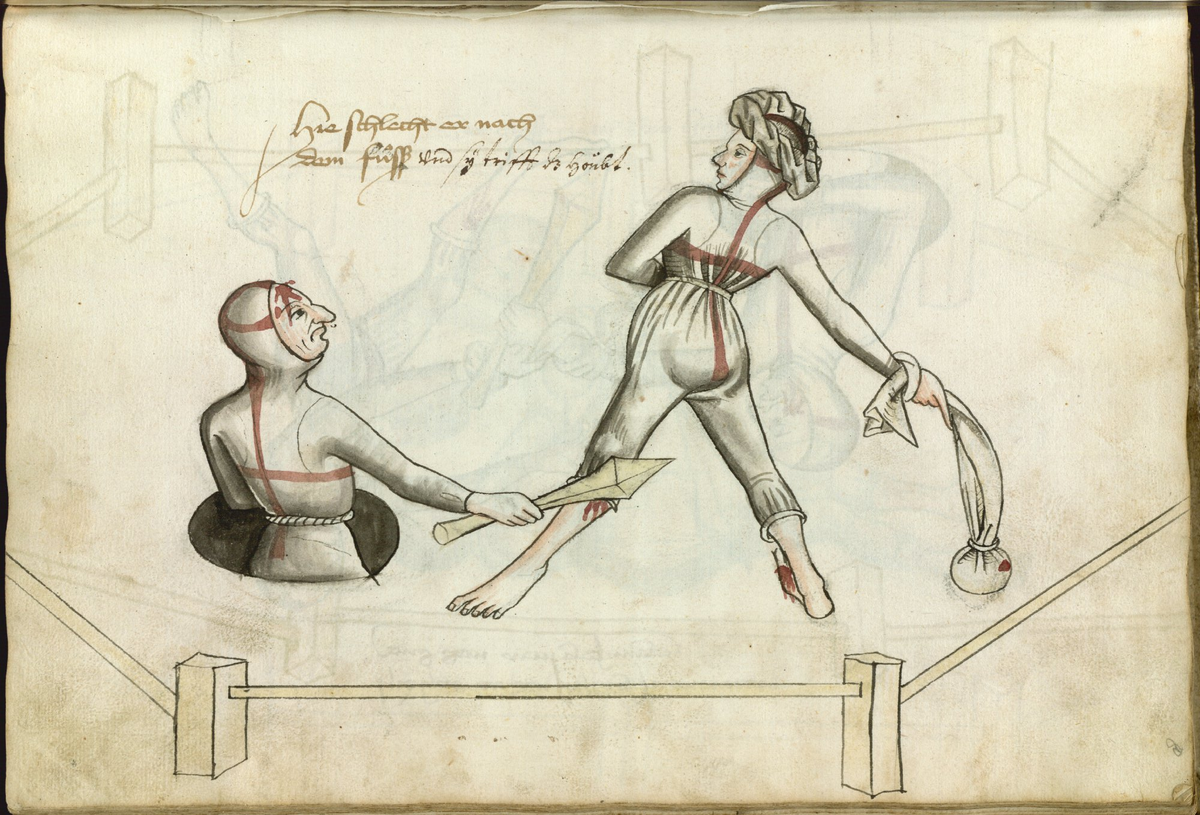 Hie schlecht er nach
dem füss vnd sÿ trifft dz höubt.